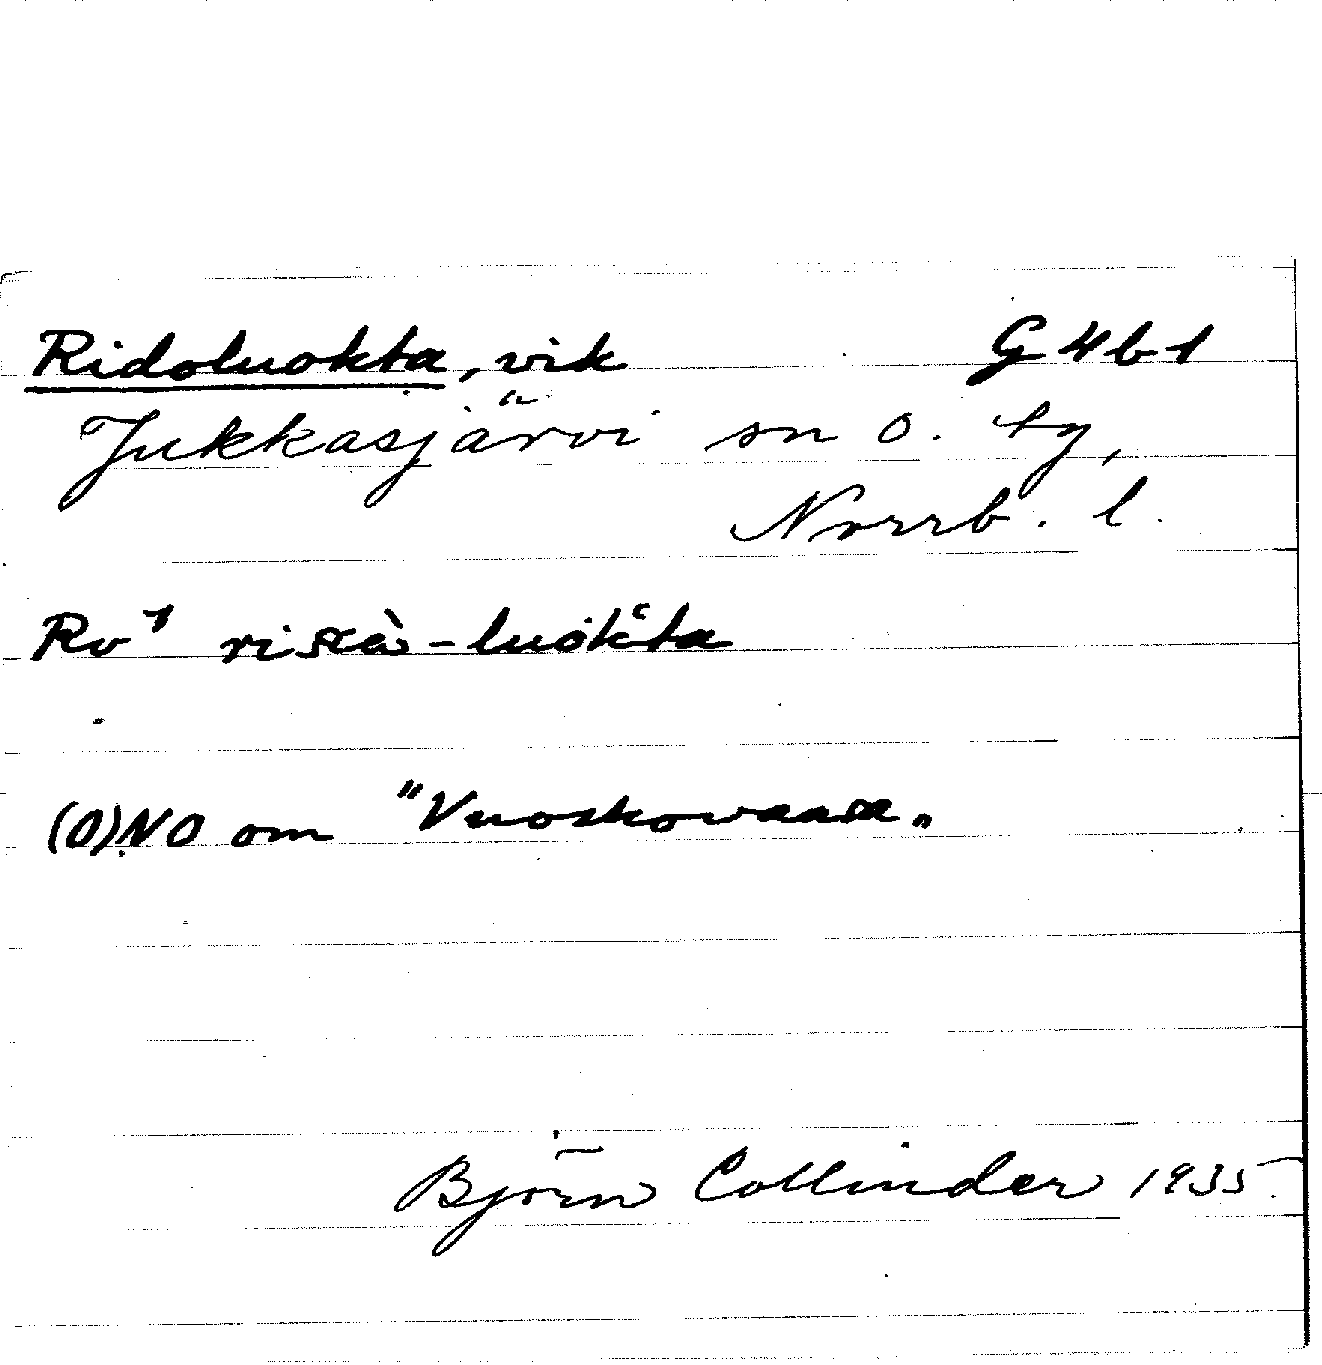 Ridoluokta, vik G 4 b 1
Jukkasjärvi sn o. tg,
Norrb. l.
-luòk̒ta
(O)NO om "Vuoskovaara"
Björn Collinder 1935.